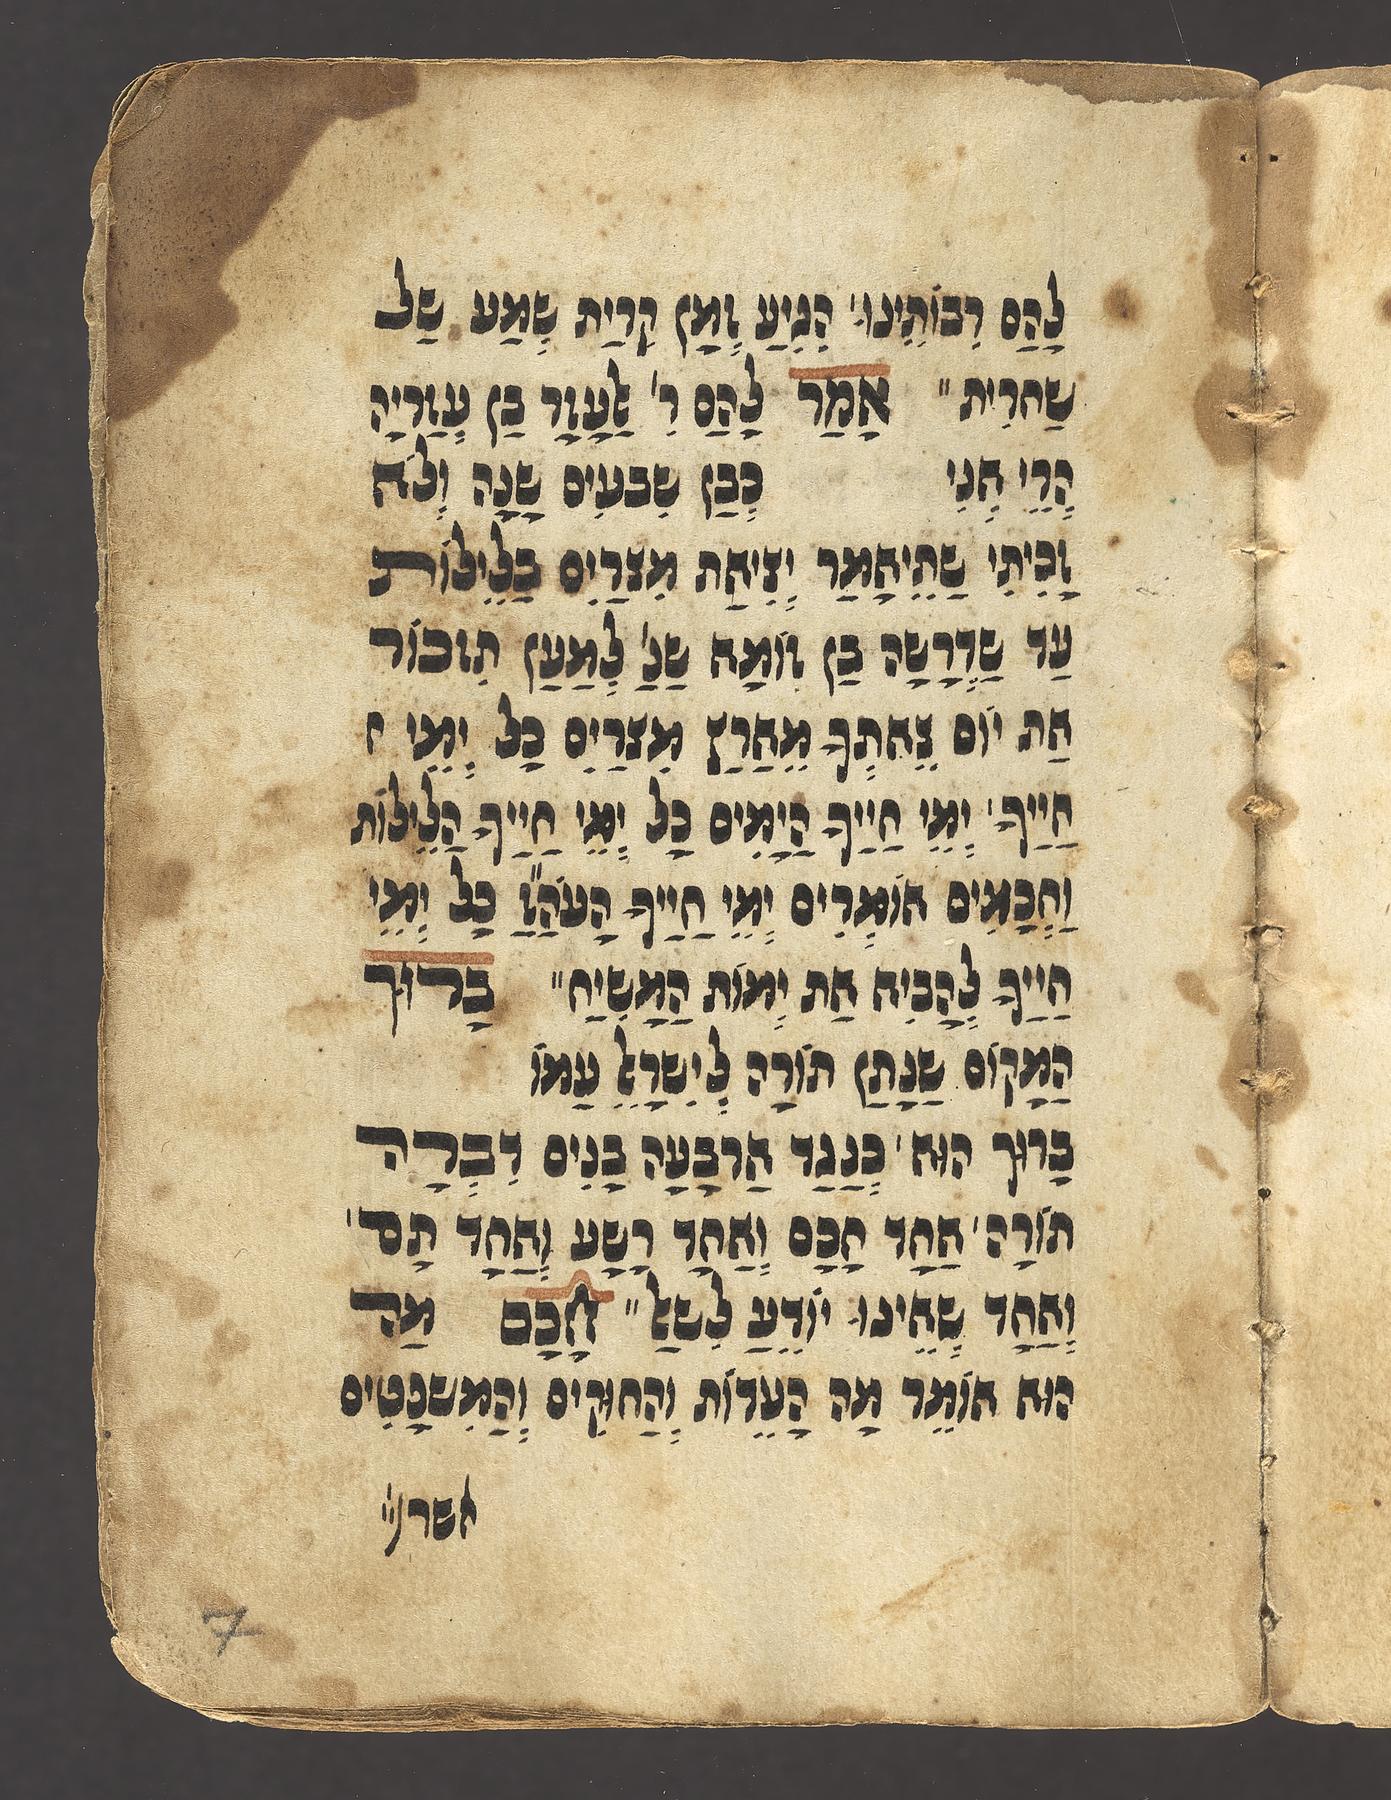 לָהַם רִבּוֹתֵינוּ' הִגִיעַ זְמַן קִרַית שְׁמַע שַׁל
שַׁחרִית" אָמַר לָהַם רִ' לַעָזָר בַּן עֲזַריָה
הֲרֵי אֲנִי כְּבַן שִׁבעִים שָׁנָה וְלֹא
זָכִיתִי שַׁתֵיאָמַר יְצִיאַת מִצרַיִם בַּלֵילוֹת
עַד שַׁדְרָשָׁהּ בַּן זוֹמָא שַׁנַ' לְמַעַן תִזכּוֹר
אַת יוֹם צֵאתְךָ מֵאַרַץ מִצרַיִם כָּל יְמֵי
חַיַיךָ' יְמֵי חַיַיךָ הַיָמִים כָּל יְמֵי חַיַיךָ הַלֵילוֹת
וַחֲכָמִים אוֹמְרִים יְמֵי חַיַיךָ הָעֹהַ"ז כָּל יְמֵי
חַיַיךָ לְהָבִיא אַת יְמוֹת הַמָשִׁיחַ" בָּרוּך
הַמָקוֹם שַׁנָתַן תוֹרָה לְיִשׂרָאֵל עַמוֹ
בָּרוּך הוּא' כְּנַגַד אַרבָּעָה בָנִים דִבְּרָה
תוֹרָה' אַחָד חָכָם וְאַחָד רָשָׁע וְאַחָד תָם'
וְאַחָד שְׁאֵינוּ יוֹדֵעַ לִשׁאַל" חָכָם מַה
הוּא אוֹמֵר מַה הָעֵדוֹת וְהַחוּקִים וְהַמִשׁפָּטִים
אשר
7